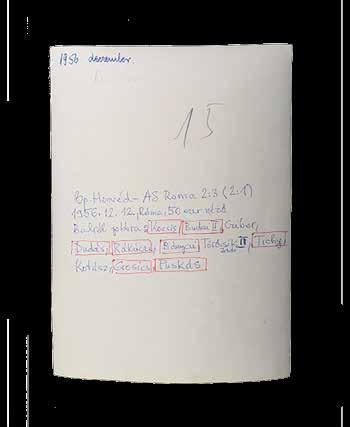 1956 december.
15
Bp. Honvéd - AS Roma 2:3 (2:1)
1956. 12. 12., Róma, 50 ezer néző
Balról jobbra: Kocsis, Budai II, Gábor,
Dudás, Rákóczi, Bányai, II, Tichy,
Kotász, Grosics, Puskás